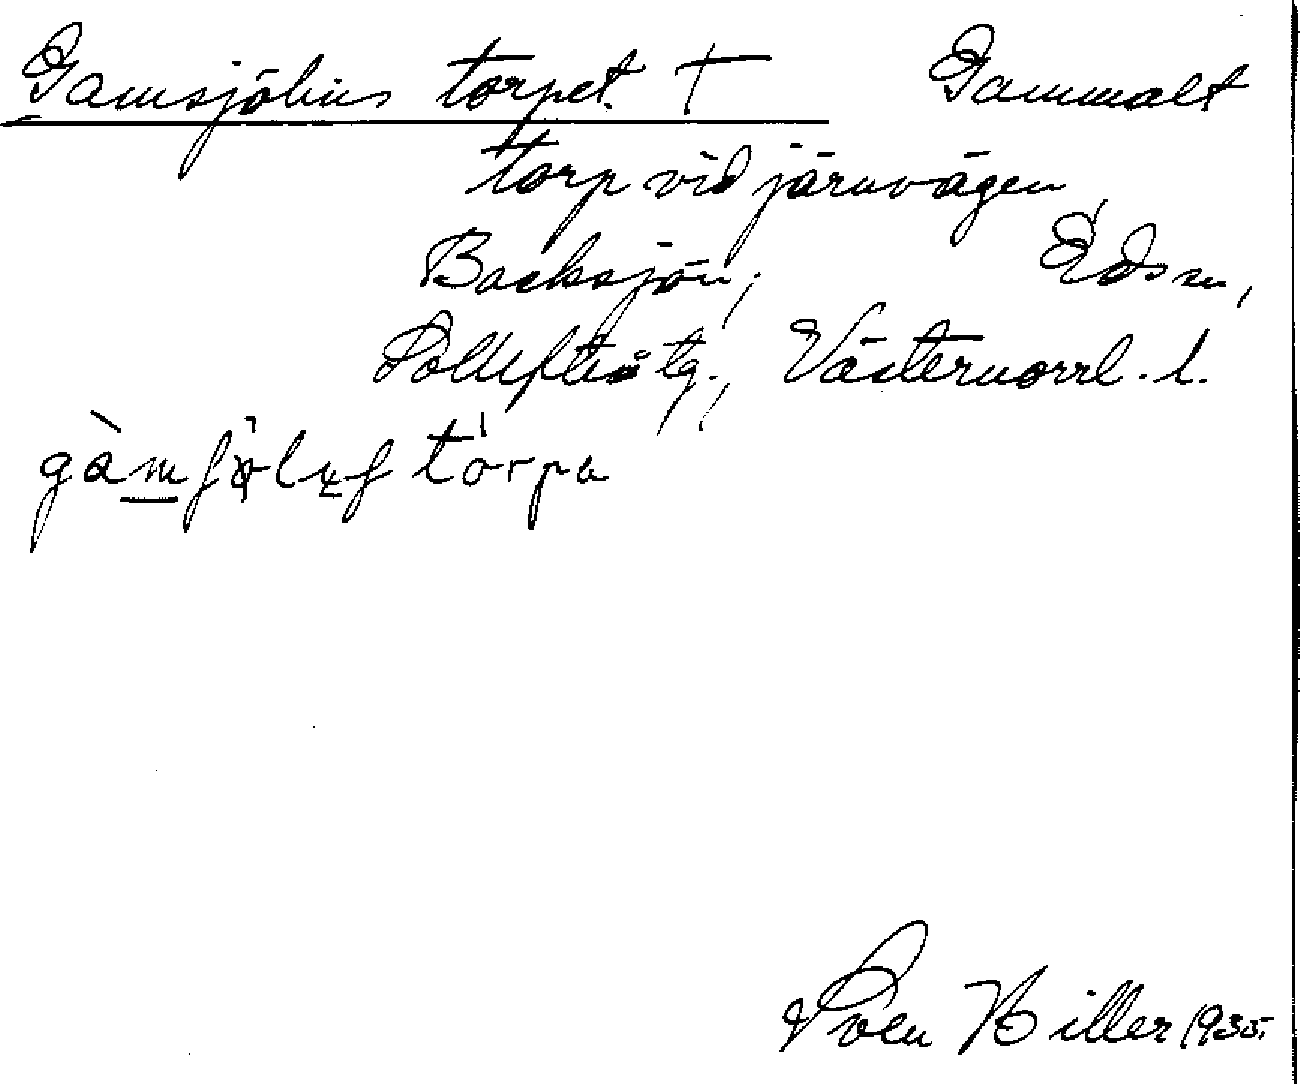 Gamsjölins torpet. † Gammalt
torp vid järnvägen,
Backsjön, Eds sn,
Sollefteå tg., Västernorrl. l.
torpa
Sven Hiller 1935.